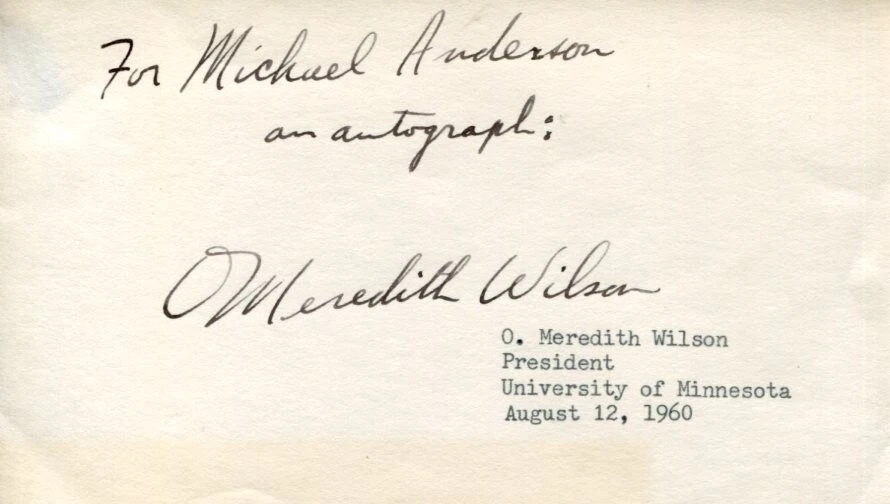 For Michael Anderson
an autograph:
O Meredith Wilson
O. Meredith Wilson
President
University of Minnesota
August 12, 1960